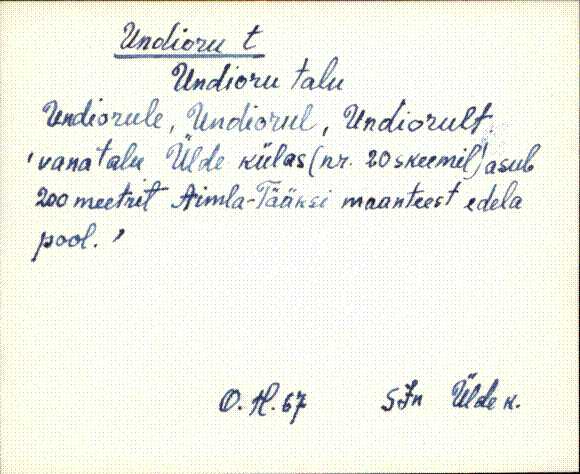 Undioru t
Undioru talu
Undiorule, Undiorul, Undiorult.
'vana talu Ülde külas (nr. 20 skeemil) asub
200 meetrit Aimla-Tääksi maanteest edela
pool.'
O. H. 67 SJn Ülde k.